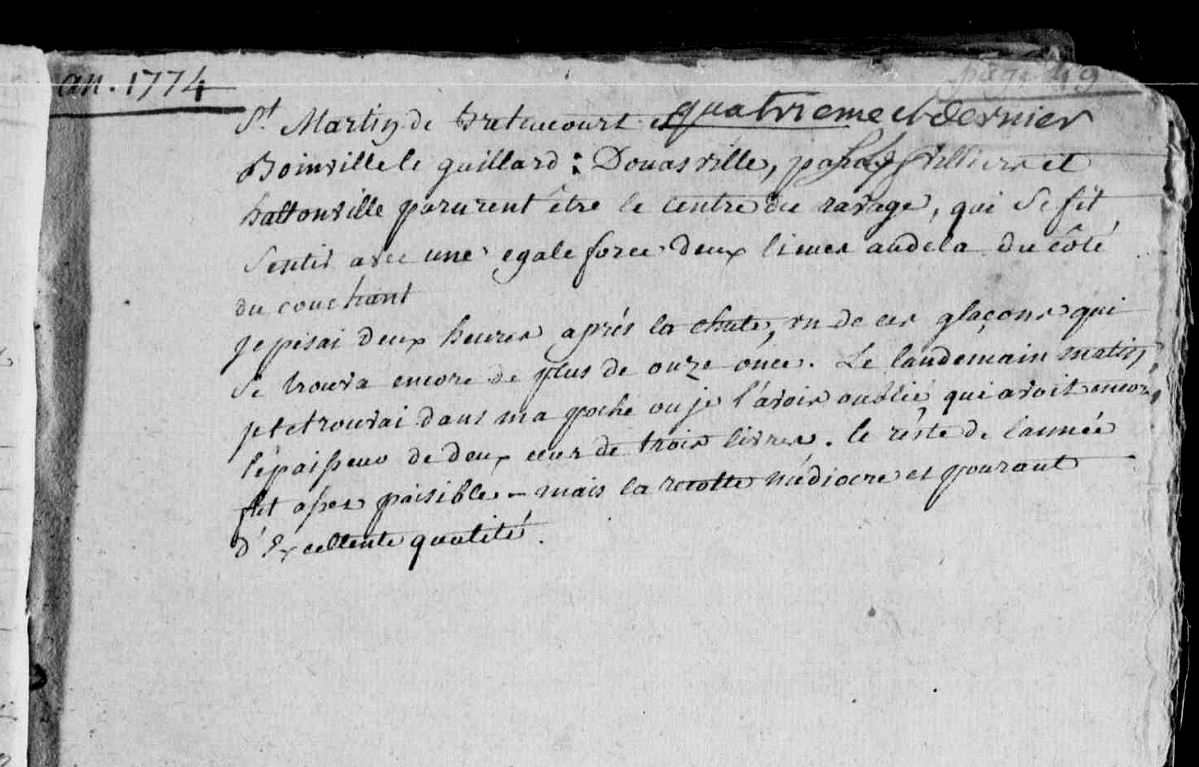 an. 1774
page 49
quatrieme et dernier
St Martin de bretencourt et
Boinville le guillard : Douasville, villiers et
hattonville parurent être le centre du ravage, qui se fit
sentir avec une egale force deux lieues audela du côté
du couchant
je pesai deux heures aprés la chute, un de ces glaçons qui
se trouva encore de plus de onze once. Le landemain matin
j'et etrouvai dans ma poche ou je l'avois oublié qui avoit encore
l'épaisseur de deux ecus de trois livres. le réste de l'année
fut assez paisible - mais la recolte médiocre et pourant
d'Excellente qualité.